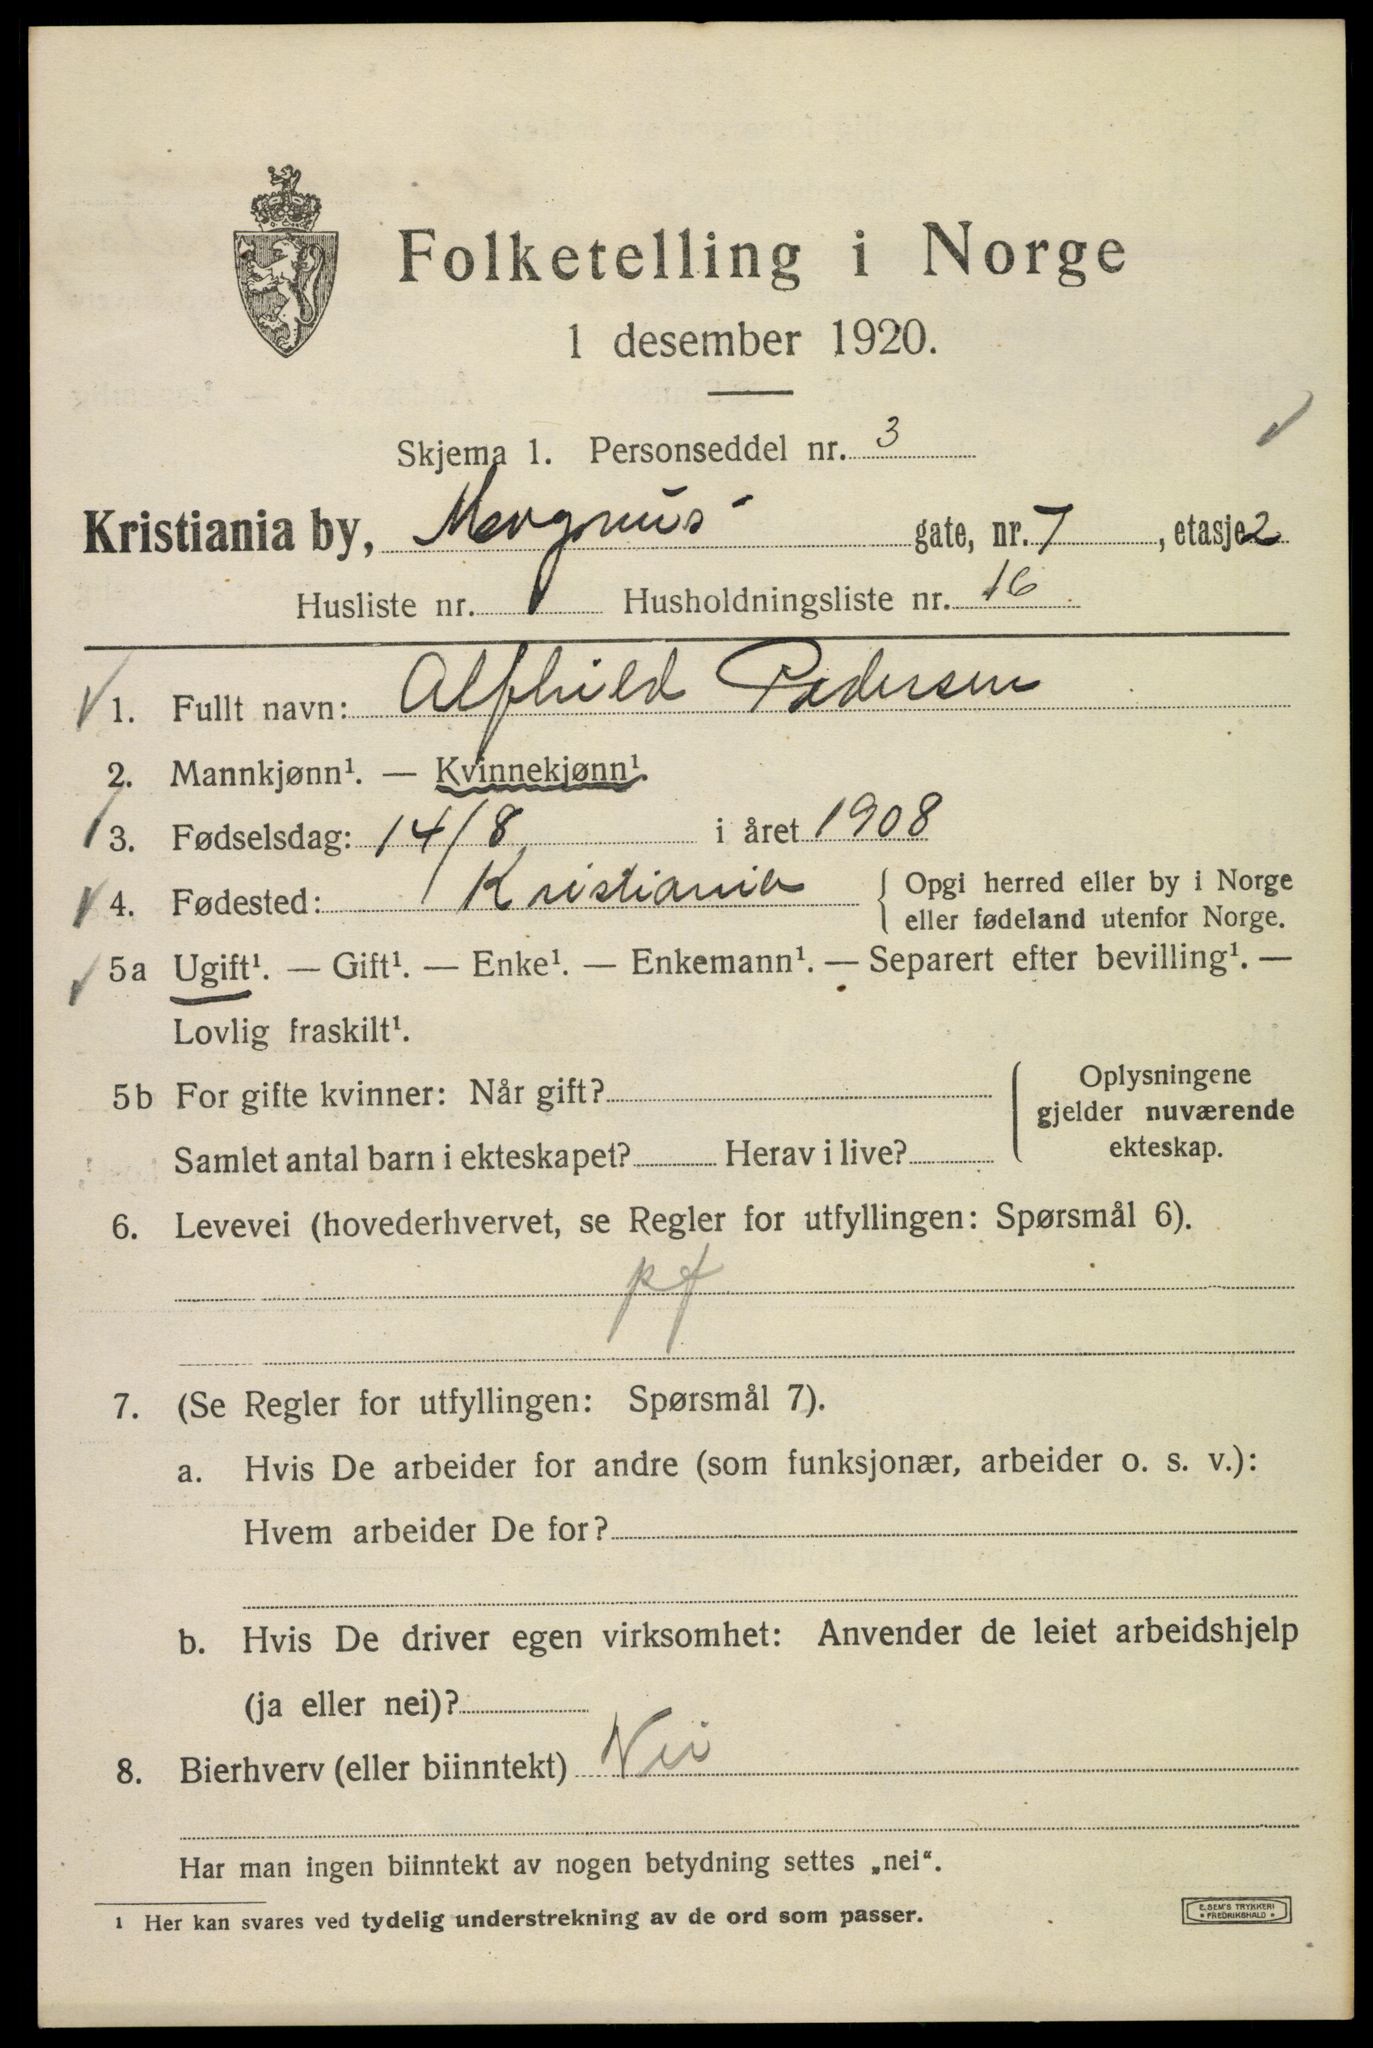 Folketelling i Norge
1 desember 1920.
Skjema 1. Personseddel nr. 3
Kristiania by, Magnus gate, nr. 7, etasje 2
Husliste nr. Husholdningsliste nr. 16
1. Fullt navn: Alfhild Pedersen
2. Mannkjønn¹. — Kvinnekjønn¹.
3. Fødselsdag: 14/8 i året 1908
4. Fødested: Kristiania { Opgi herred eller by i Norge
eller fødeland utenfor Norge.
5a Ugift¹. — Gift¹. — Enke¹. — Enkemann¹. — Separert efter bevilling¹. —
Lovlig fraskilt¹.
5b For gifte kvinner: Når gift?
Samlet antal barn i ekteskapet? Herav i live?
Oplysningene
gjelder nuværende
ekteskap.
6. Levevei (hovederhvervet, se Regler for utfyllingen: Spørsmål 6).
pf
7. (Se Regler for utfyllingen: Spørsmål 7).
a. Hvis De arbeider for andre (som funksjonær, arbeider o. s. v.):
Hvem arbeider De for?
b. Hvis De driver egen virksomhet: Anvender de leiet arbeidshjelp
(ja eller nei)?
8. Bierhverv (eller biinntekt) Nei
Har man ingen biinntekt av nogen betydning settes „nei“.
¹ Her kan svares ved tydelig understrekning av de ord som passer.
E. SEM'S TRYKKERI
• FREDRIKSHALD •